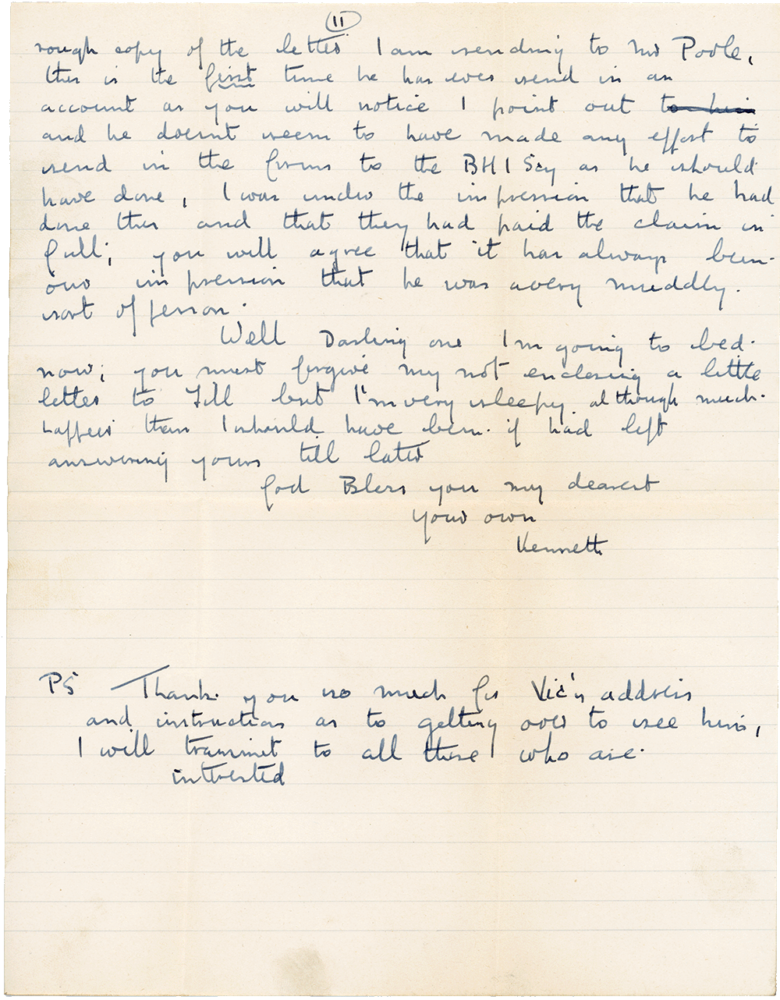 11
rough copy of the letter I am sending to Mr Poole,
this is the first time he has ever send in an
account as you will notice I point out to him
and he doesnt seem to have made any effort to
send in the forms to the BHI Scy as he should
have done, I was under the impression that he had
done this and that they had paid the claim in
full; you will agree that it has always been
our impression that he was a very muddly
sort of person.
Well Darling one I'm going to bed
now; you must forgive my not enclosing a little
letter to Jill but I'm very sleepy although much
happier than I should have been if had left
answering yours till later
God Bless you my dearest
your own
Kenneth
PS Thank you so much for Vic's address
and instruction as to getting over to see him,
I will transmit to all those who are
intrested